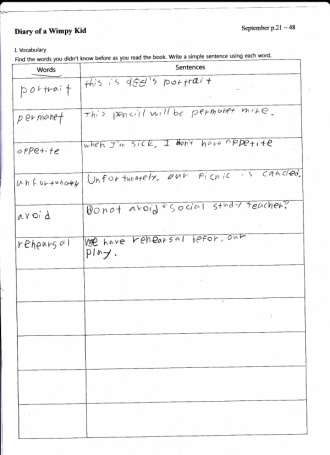 Diary of a Wimpy Kid
September p.21 ~ 48
I. Vocabulary
Find the words you didn't know before as you read the book. Write a simple sentence using each word.
Words
Sentences
portrait
this is portrait
permanet
This pencill will be permanet mine.
appetite
when I'm sick, I don't have appetite
unfortunately
Unfortunately, our picnic is cancled.
avoid
Do not avoid social study teacher?
rehearsal
We have rehearsal befor. our
play.